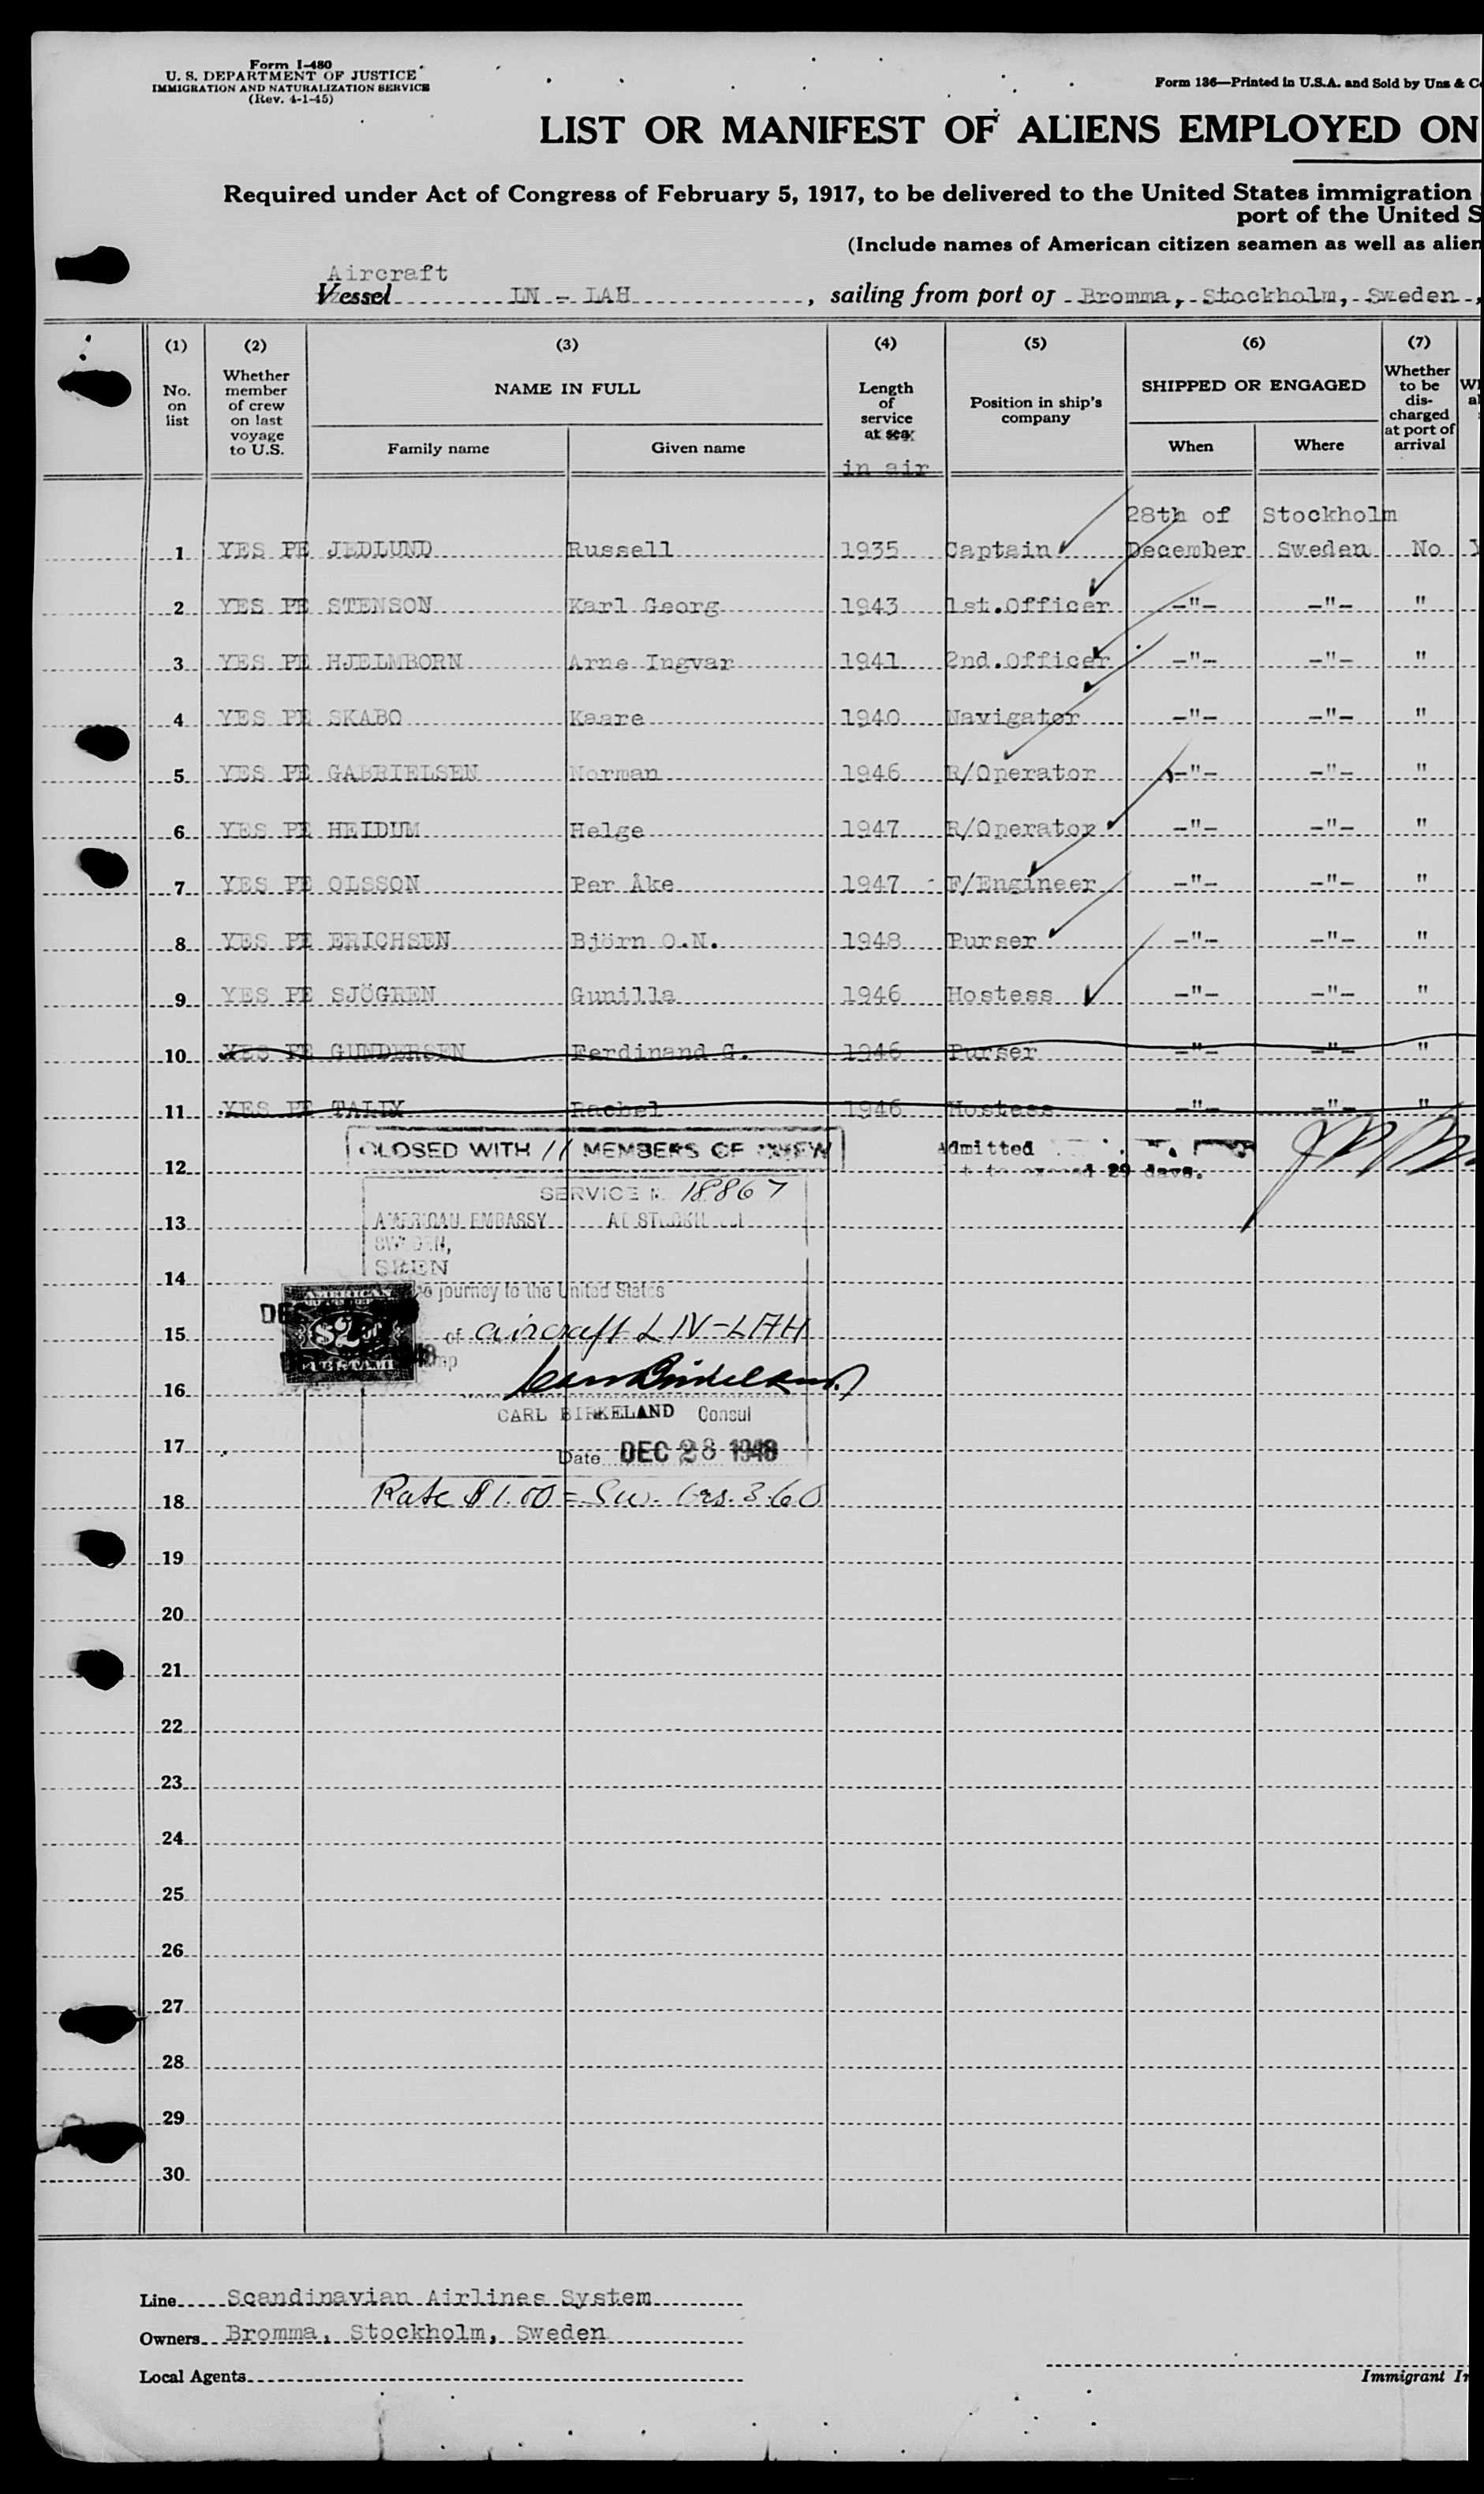 Form I-480
U. S. DEPARTMENT OF JUSTICE
IMMIGRATION AND NATURALIZATION SERVICE
(Rev. 4-1-45)
Form 136—Printed in U.S.A. and Sold by Unz & C
LIST OR MANIFEST OF ALIENS EMPLOYED ON
Required under Act of Congress of February 5, 1917, to be delivered to the United States immigration
port of the United S
(Include names of American citizen seamen as well as alien
Aircraft
Vessel LN - LAH , sailing from port of Bromma, Stockholm, Sweden ,
(1) (2) (3) (4) (5) (6) (7)
No. on list
Whether member of crew on last voyage to U.S.
NAME IN FULL
Family name Given name
Length of service at sea in air
Position in ship's company
SHIPPED OR ENGAGED
When Where
Whether to be discharged at port of arrival
28th of Stockholm
1 YES PE JEDLUND Russell 1935 Captain December Sweden No
2 YES PE STENSON Karl Georg 1943 1st.Officer -"- -"- "
3 YES PE HJELMBORN Arne Ingvar 1941 2nd.Officer -"- -"- "
4 YES PE SKABO Kaare 1940 Navigator -"- -"- "
5 YES PE GABRIELSEN Norman 1946 R/Operator -"- -"- "
6 YES PE HEIDUM Helge 1947 R/Operator -"- -"- "
7 YES PE OLSSON Per Åke 1947 F/Engineer -"- -"- "
8 YES PE ERICHSEN Björn O.N. 1948 Purser -"- -"- "
9 YES PE SJÖGREN Gunilla 1946 Hostess -"- -"- "
10 YES PE GUNDERSEN Ferdinand G. 1946 Purser -"- -"- "
11 YES PE TALIX Rachel 1946 Hostess -"- -"- "
CLOSED WITH 11 MEMBERS OF CREW
Admitted
29 days.
12
SERVICE N 18867
13
AMERICAN EMBASSY AT STOCKHOLM
SWEDEN,
14
journey to the United States
AMERICAN
DEC
$2
15
of aircraft LN-LAH
16
CARL BIRKELAND Consul
17
Date DEC 28 1948
18
Rate $1.00 = Sw. Crs. 3.60
19
20
21
22
23
24
25
26
27
28
29
30
Line Scandinavian Airlines System
Owners Bromma, Stockholm, Sweden
Local Agents
Immigrant In